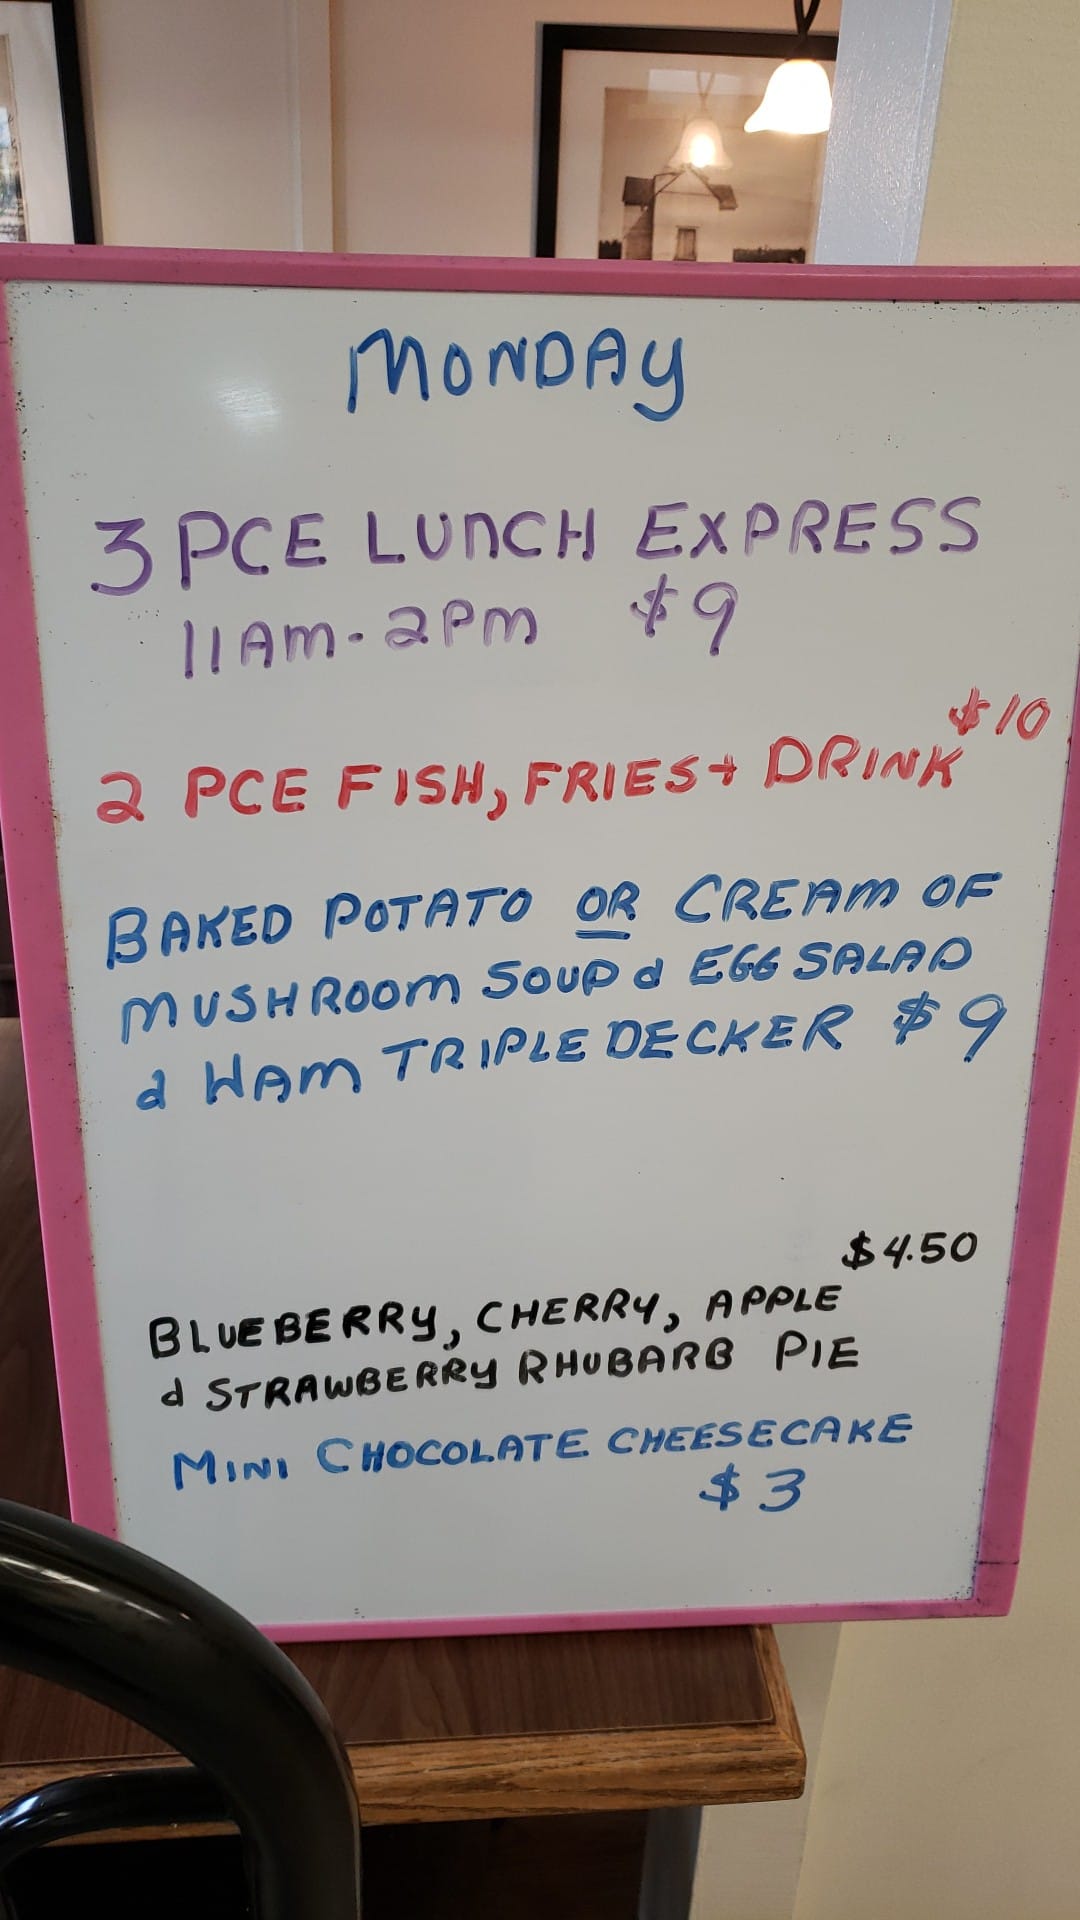 MONDAY
3 PCE LUNCH EXPRESS
11AM-2PM $9
$10
2 PCE FISH, FRIES + DRINK
BAKED POTATO OR CREAM OF
MUSHROOM SOUP & EGG SALAD
& HAM TRIPLE DECKER $9
$4.50
BLUEBERRY, CHERRY, APPLE
& STRAWBERRY RHUBARB PIE
MINI CHOCOLATE CHEESECAKE
$3